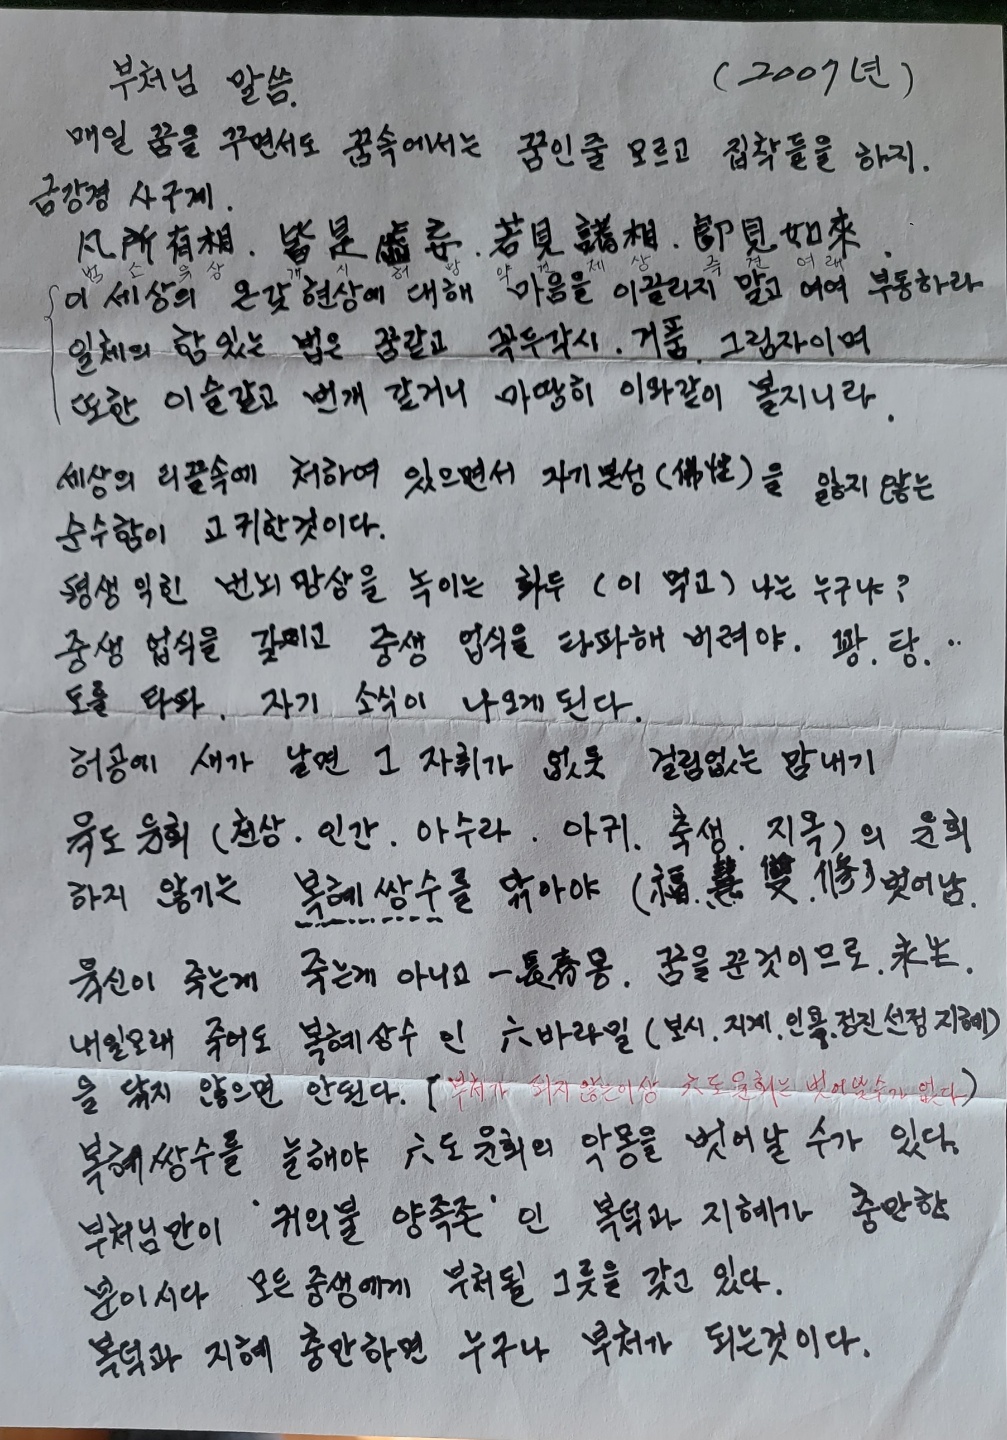 부처님 말씀. (2007년)
매일 꿈을 꾸면서도 꿈속에서는 꿈인줄 모르고 집착들을 하지.
금강경 사구게.
凡所有相. 皆是虛妄. 若見諸相. 卽見如來.
범 소 유 상 개 시 허 망 약 견 제 상 즉 견 여래
이 세상의 온갖 현상에 대해 마음을 이끌리지 말고 여여 부동하라
일체의 함 있는 법은 꿈같고 꼭두각시. 거품. 그림자이며
또한 이슬같고 번개 같거니 마땅히 이와같이 볼지니라.
세상의 티끌속에 처하여 있으면서 자기본성(佛性)을 잃지 않는
순수함이 고귀한것이다.
평생 익힌 번뇌 망상을 녹이는 화두 (이 먹고) 나는 누구냐?
중생 업식을 갖이고 중생 업식을 타파해 버려야. 꽝. 탕. ··
도를 타파. 자기 소식이 나오게 된다.
허공에 새가 날면 그 자취가 없듯 걸림없는 맘내기
육도 윤회 (천상. 인간. 아수라. 아귀. 축생. 지옥)의 윤회
하지 않기는 복혜쌍수를 닦아야 (福.慧.雙.修) 벗어남.
육신이 죽는게 죽는게 아니고 一長春몽. 꿈을 꾼것이므로. 永生.
내일모래 죽어도 복혜쌍수 인 六바라밀 (보시. 지계. 인욕. 정진 선정 지혜)
을 닦지 않으면 안된다. [부처가 되지않는이상 六도윤회는 벗어날수가 없다)
복혜쌍수를 늘해야 六도 윤회의 악몽을 벗어날 수가 있다.
부처님만이 '귀의불 양족존' 인 복덕과 지혜가 충만한
분이시다 모든 중생에게 부처될 그릇을 갖고 있다.
복덕과 지혜 충만하면 누구나 부처가 되는것이다.